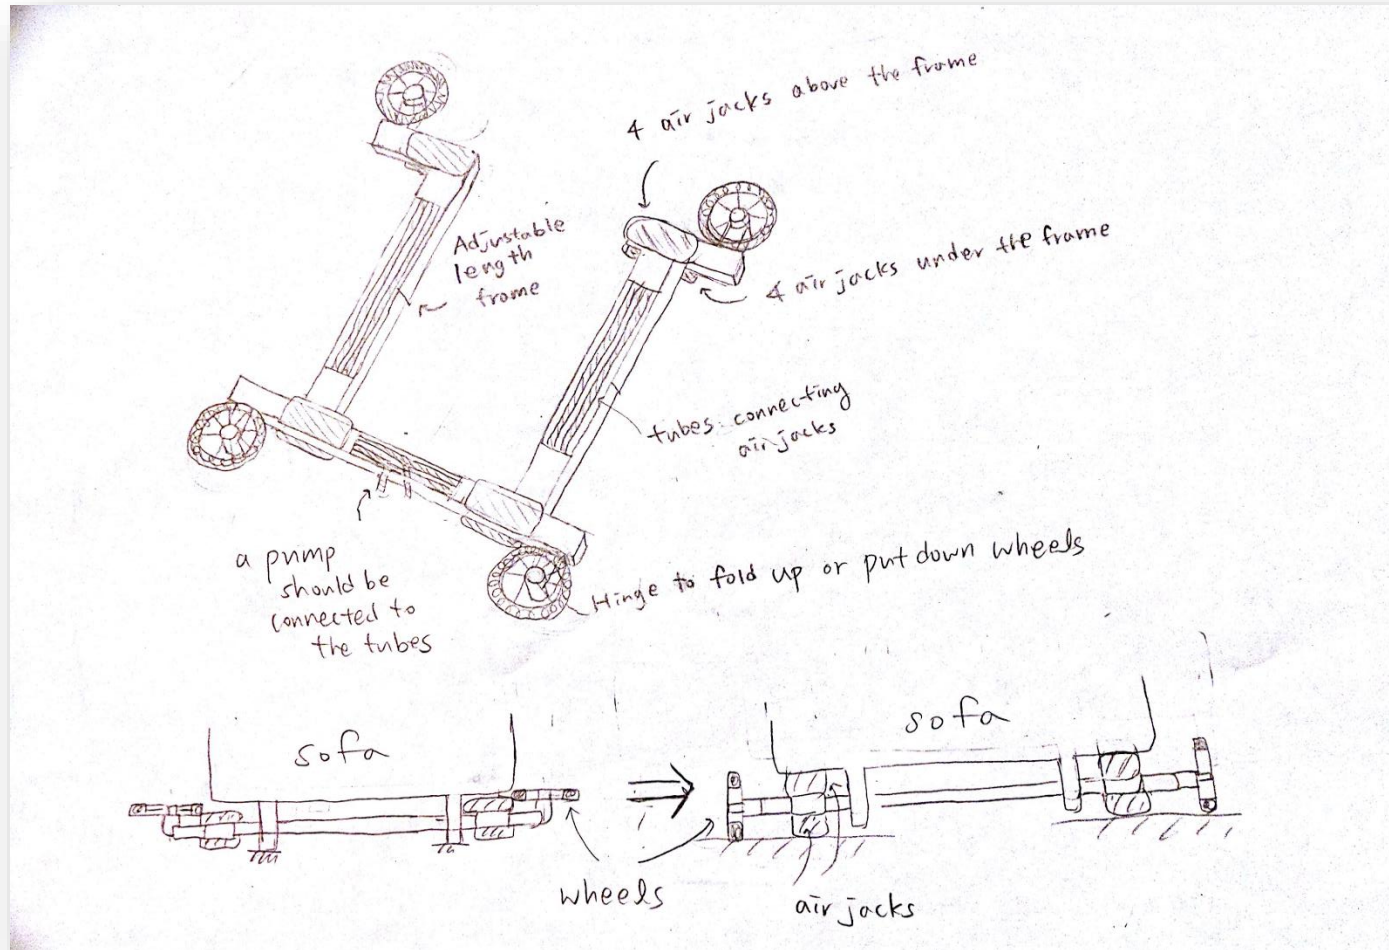 4 air jacks above the frame
Adjustable
length
frame
4 air jacks under the frame
tubes connecting
air jacks
a pump
should be
connected to
the tubes
Hinge to fold up or put down wheels
sofa
sofa
wheels
air jacks